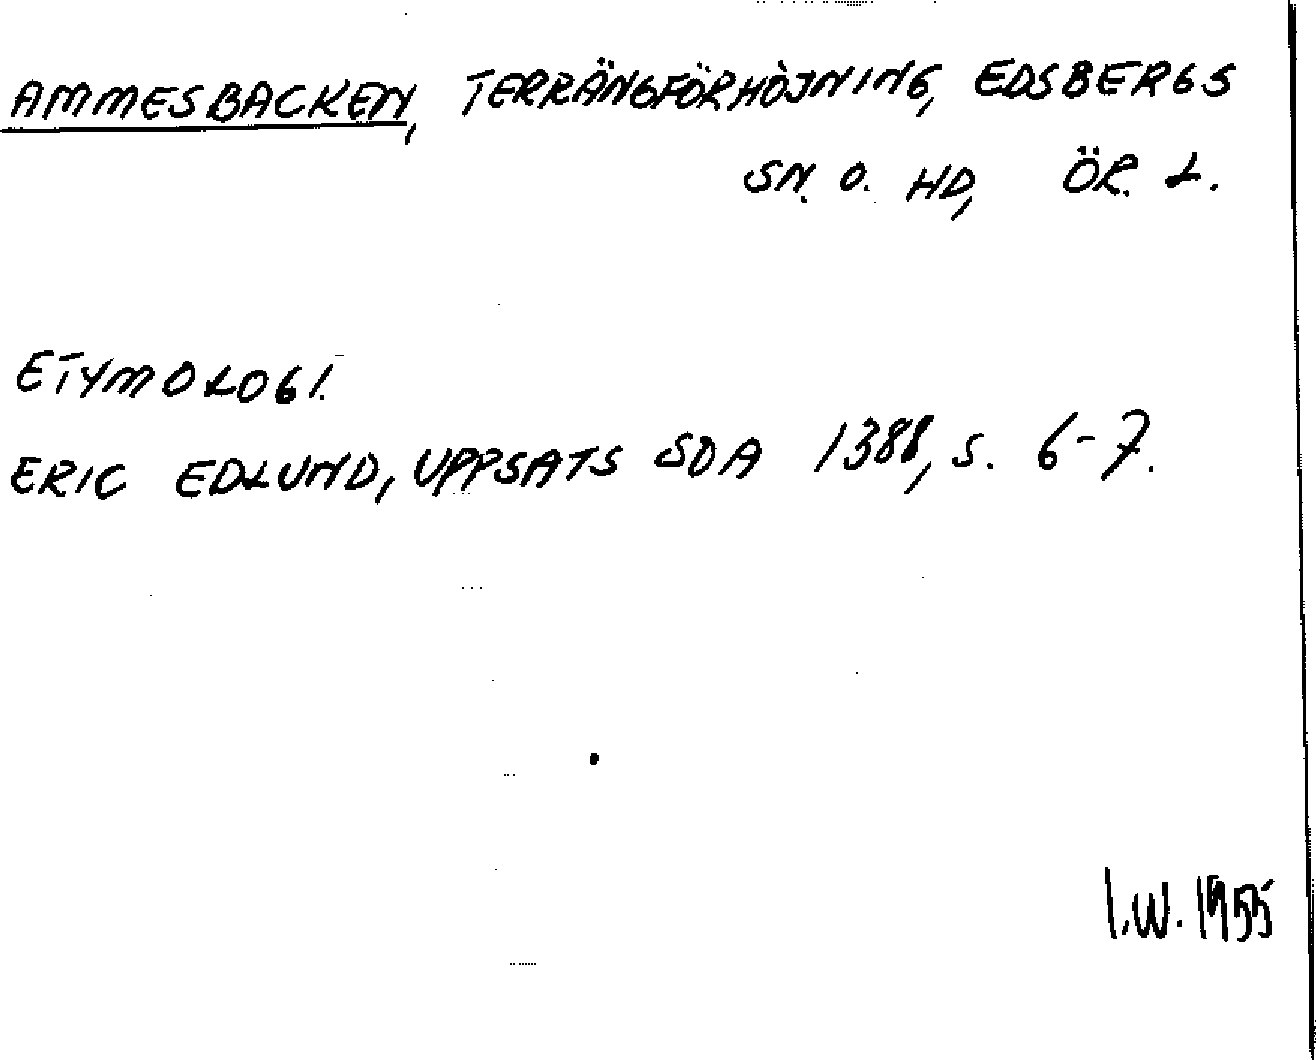 AMMESBACKEN, TERRÄNGFÖRHÖJNING, EDSBERGS
SN. O. HD, ÖR. L.
ETYMOLOGI.
ERIC EDLUND, UPPSATS SOA 1388, S. 6-7.
I.W. 1955